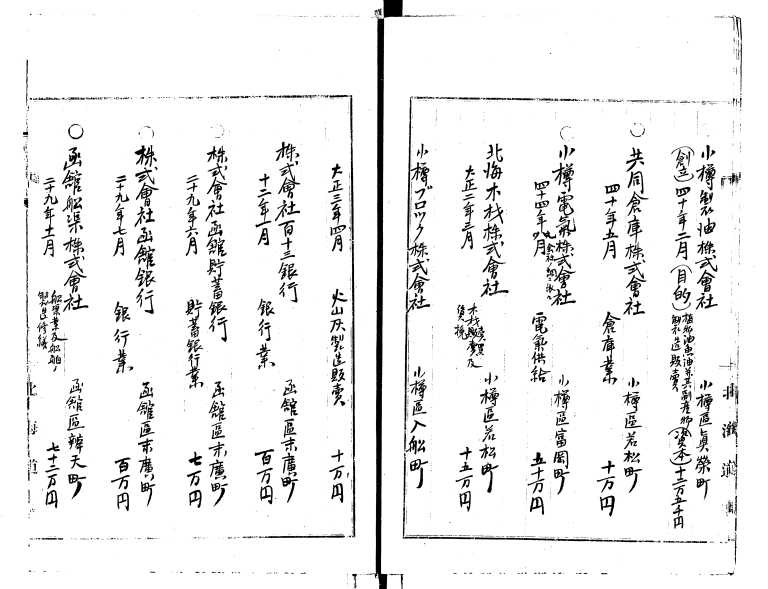 小樽製油株式會社　小樽區眞榮町
(創立)四十年二月　(目的)　(資本)十二万五千円
○　共同倉庫株式會社　小樽區若松町
四十年五月　倉庫業　十万円
○　小樽電氣株式會社　小樽區富岡町
四十四年　月　電氣供給　五十万円
北海木材株式會社　小樽區若松町
大正二年三月　木材　賣買及　十五万円
小樽ブロック株式會社　小樽區入舩町
大正三年四月　火山灰製造販賣　十万円
株式會社百十三銀行　函館區末廣町
十二年一月　銀行業　百万円
○　株式會社函館貯蓄銀行　函館區末廣町
二十九年六月　貯蓄銀行業　七万円
○　株式會社函館銀行　函館區末廣町
二十九年七月　銀行業　百万円
○　函館船渠株式會社　函館區辨天町
二十九年十一月　船渠業及船舶ノ製造修繕　七十二万円
北海道